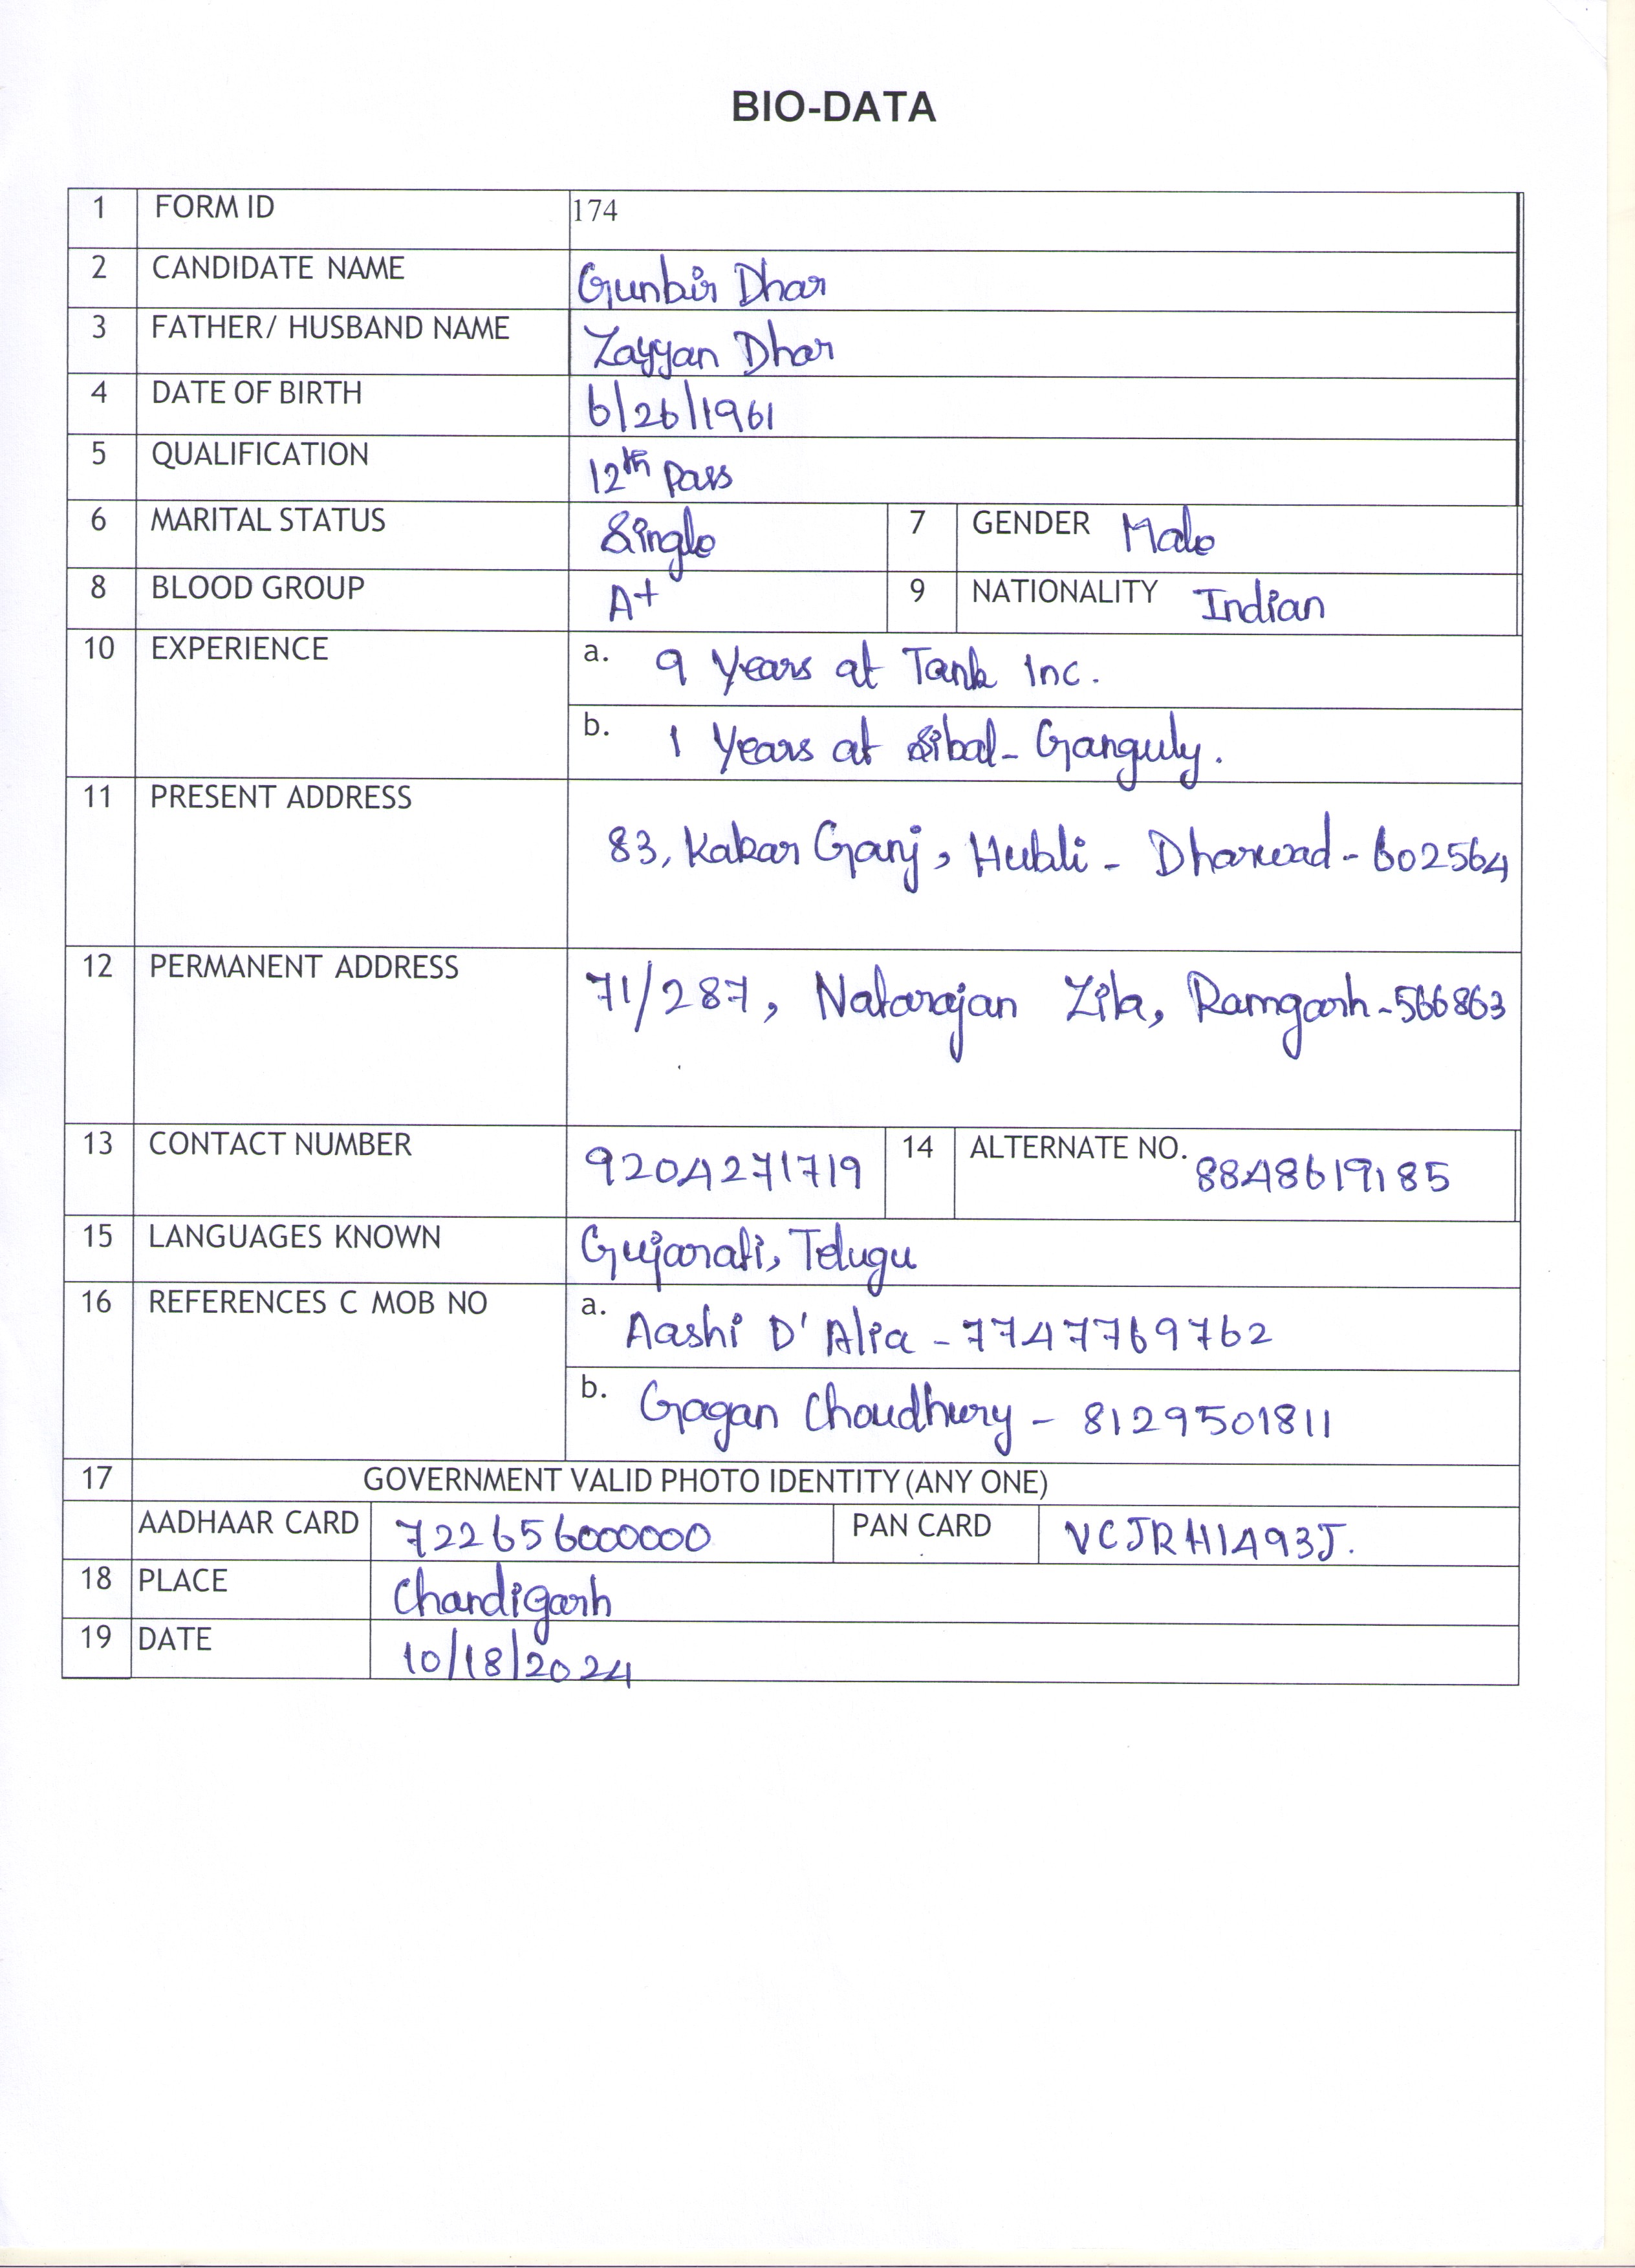 BIO-DATA
1 FORM ID 174
2 CANDIDATE NAME Gunbir Dhar
3 FATHER/ HUSBAND NAME Zayyan Dhar
4 DATE OF BIRTH 6/26/1961
5 QUALIFICATION 12th Pass
6 MARITAL STATUS Single 7 GENDER Male
8 BLOOD GROUP A+ 9 NATIONALITY Indian
10 EXPERIENCE a. 9 Years at Tank Inc.
b. 1 Years at Sibal-Ganguly.
11 PRESENT ADDRESS 83, Kakar Ganj, Hubli - Dharwad - 602564
12 PERMANENT ADDRESS 71/287, Natarajan Zila, Ramgarh - 566863
13 CONTACT NUMBER 9204271719 14 ALTERNATE NO. 8848619185
15 LANGUAGES KNOWN Gujarati, Telugu
16 REFERENCES C MOB NO a. Aashi D'Alia - 7747769762
b. Gagan Choudhury - 8129501811
17 GOVERNMENT VALID PHOTO IDENTITY (ANY ONE)
AADHAAR CARD 722656000000 PAN CARD VCJRH1493J.
18 PLACE Chandigarh
19 DATE 10/18/2024